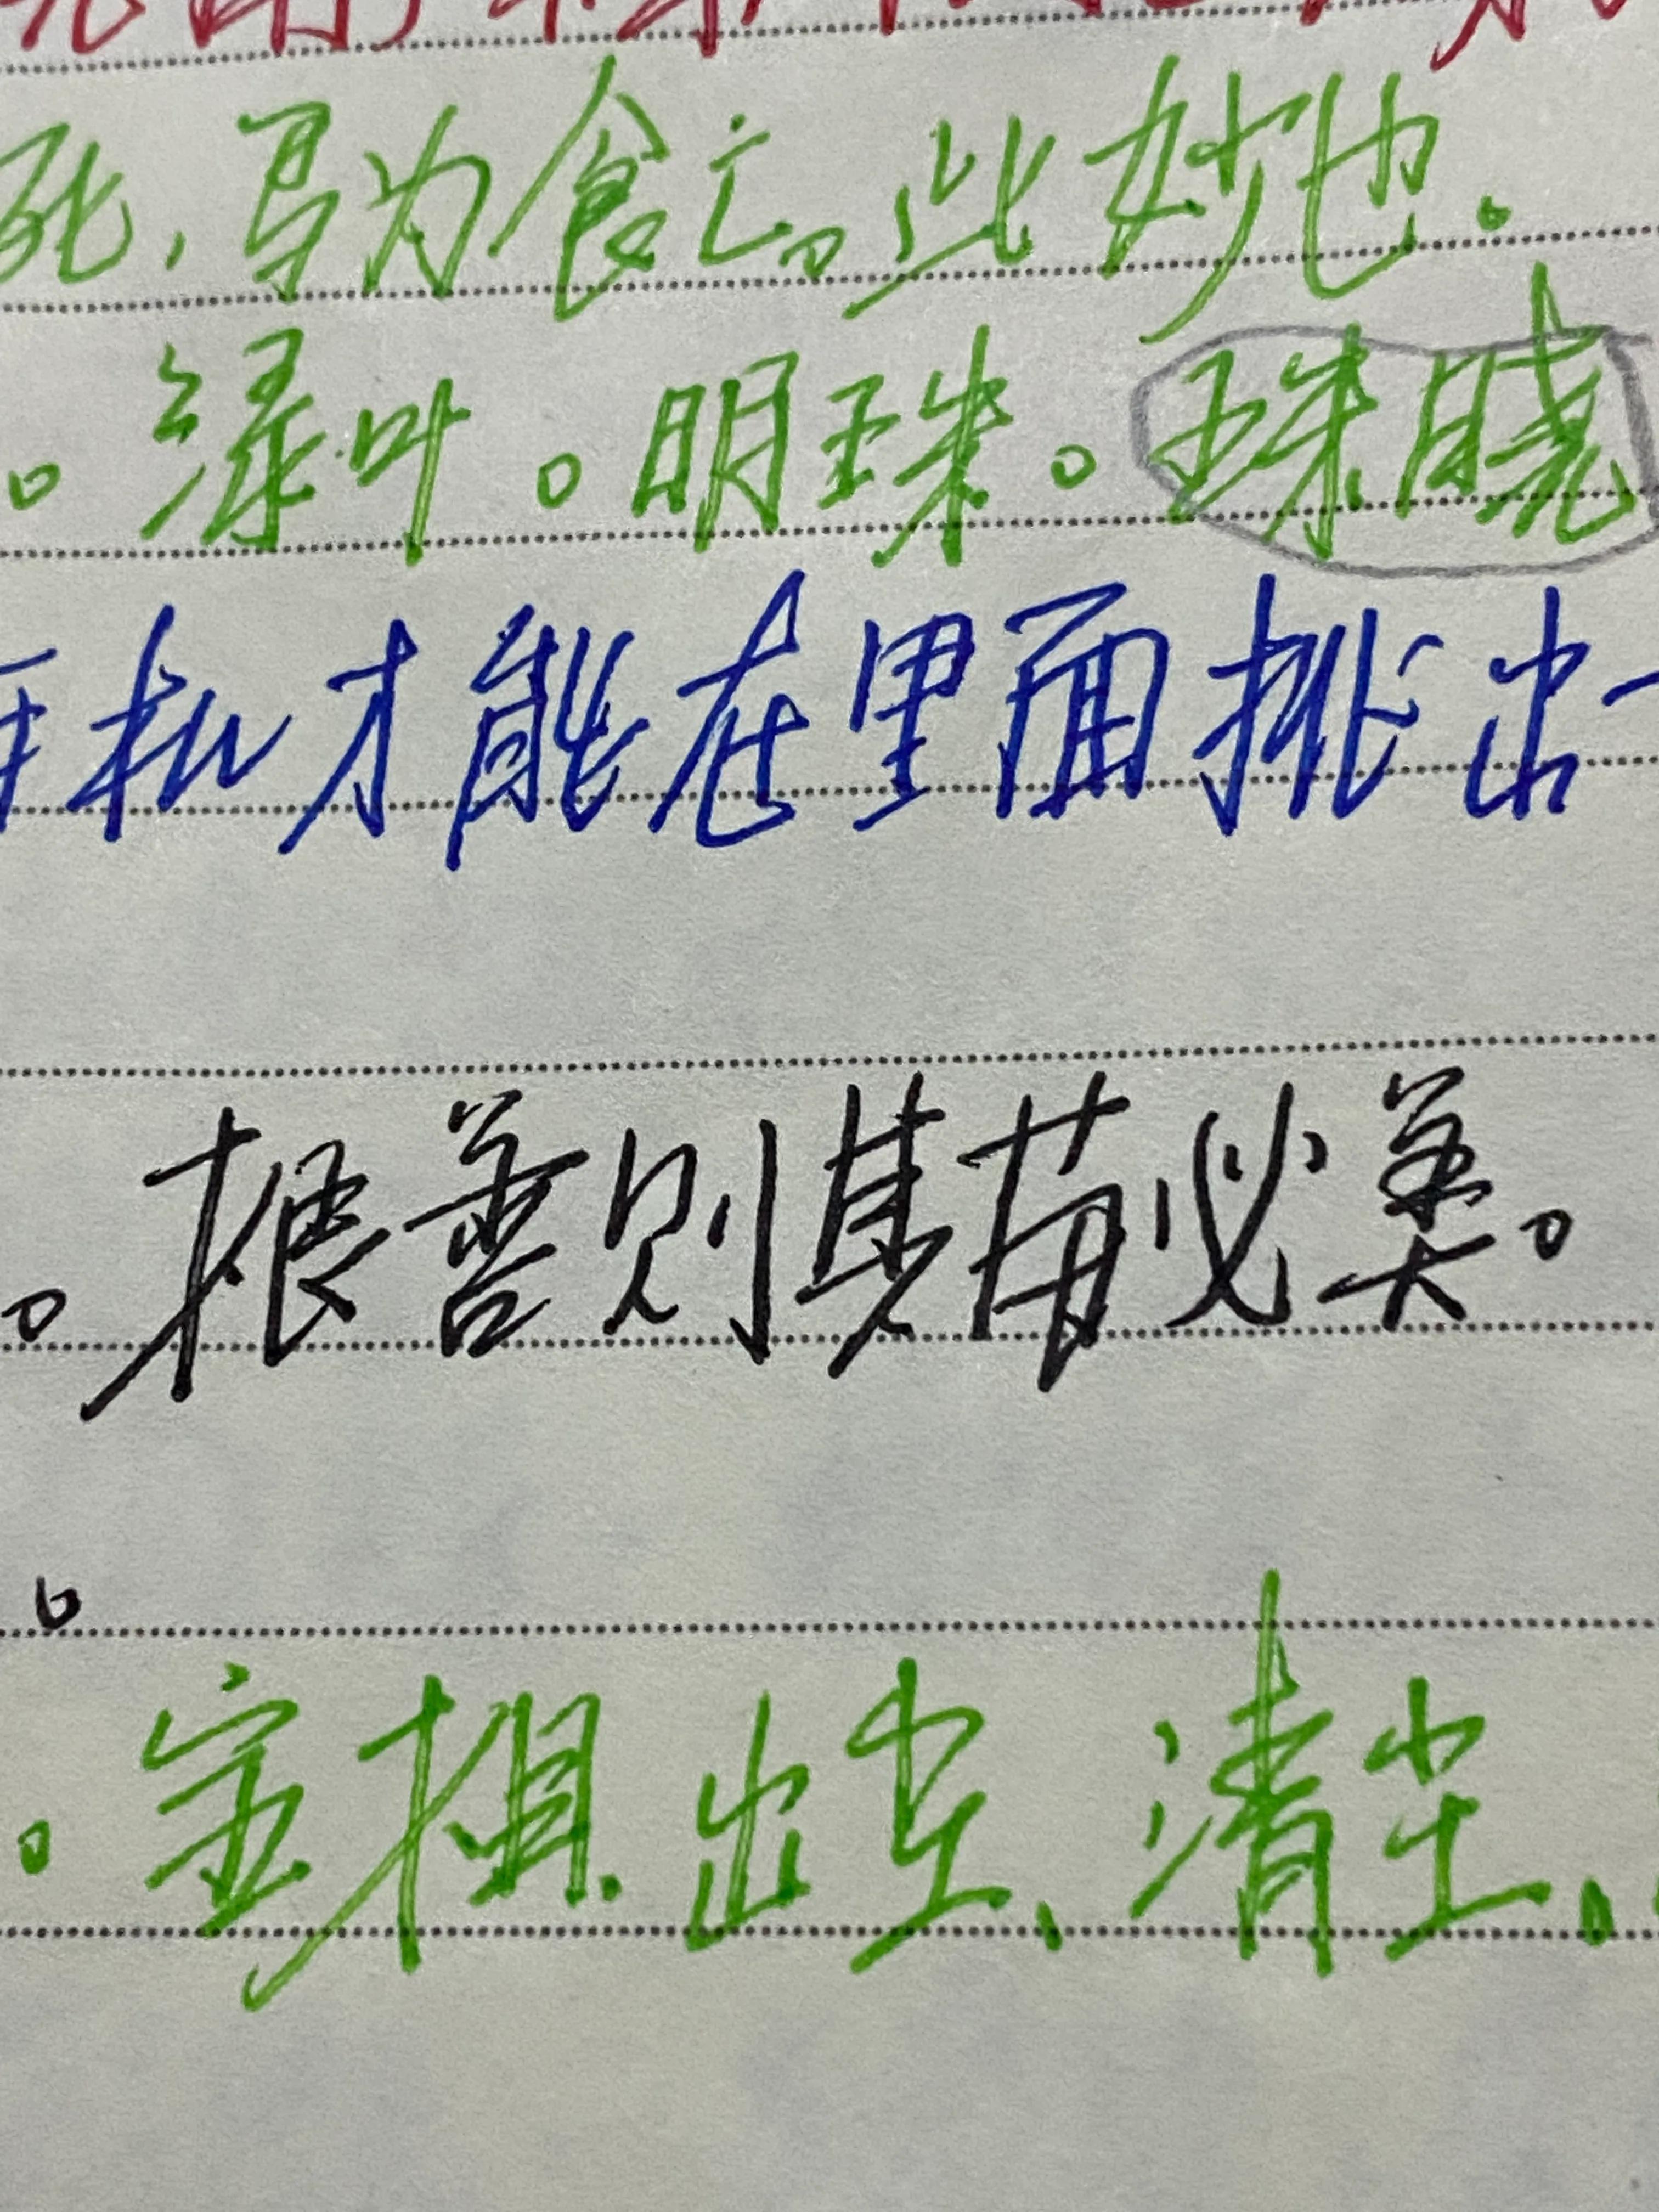 死，鸟为食亡。此妙也．
。绿叶。明珠。珠晓
机才能在里面挑出一
。根善则其苗必美。
。宝棋出尘、清尘、